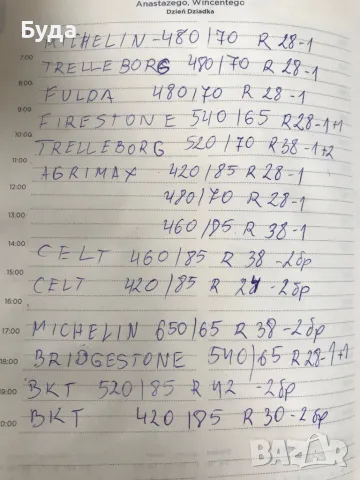 Anastazego, Wincentego
Dzień Dziadka
Буда
MICHELIN - 480/70 R 28-1
7:00
TRELLEBORG 480/70 R 28-1
FULDA 480/70 R 28-1
FIRESTONE 540/65 R28-1+1
10:00
TRELLEBORG 520/70 R38-1+2
11:00
AGRIMAX 420/85 R 28-1
12:00
480/70 R 28-1
13:00
460/85 R 38-1
14:00
CELT 460/85 R 38 -2бр
15:00
CELT 420/85 R 24 -2бр
16:00
MICHELIN 650/65 R 38-2бр
17:00
BRIDGESTONE 540/65 R28-1+1
18:00
BKT 520/85 R 42 -2бр
19:00
BKT 420/85 R 30-2бр
0:00
BAZAR